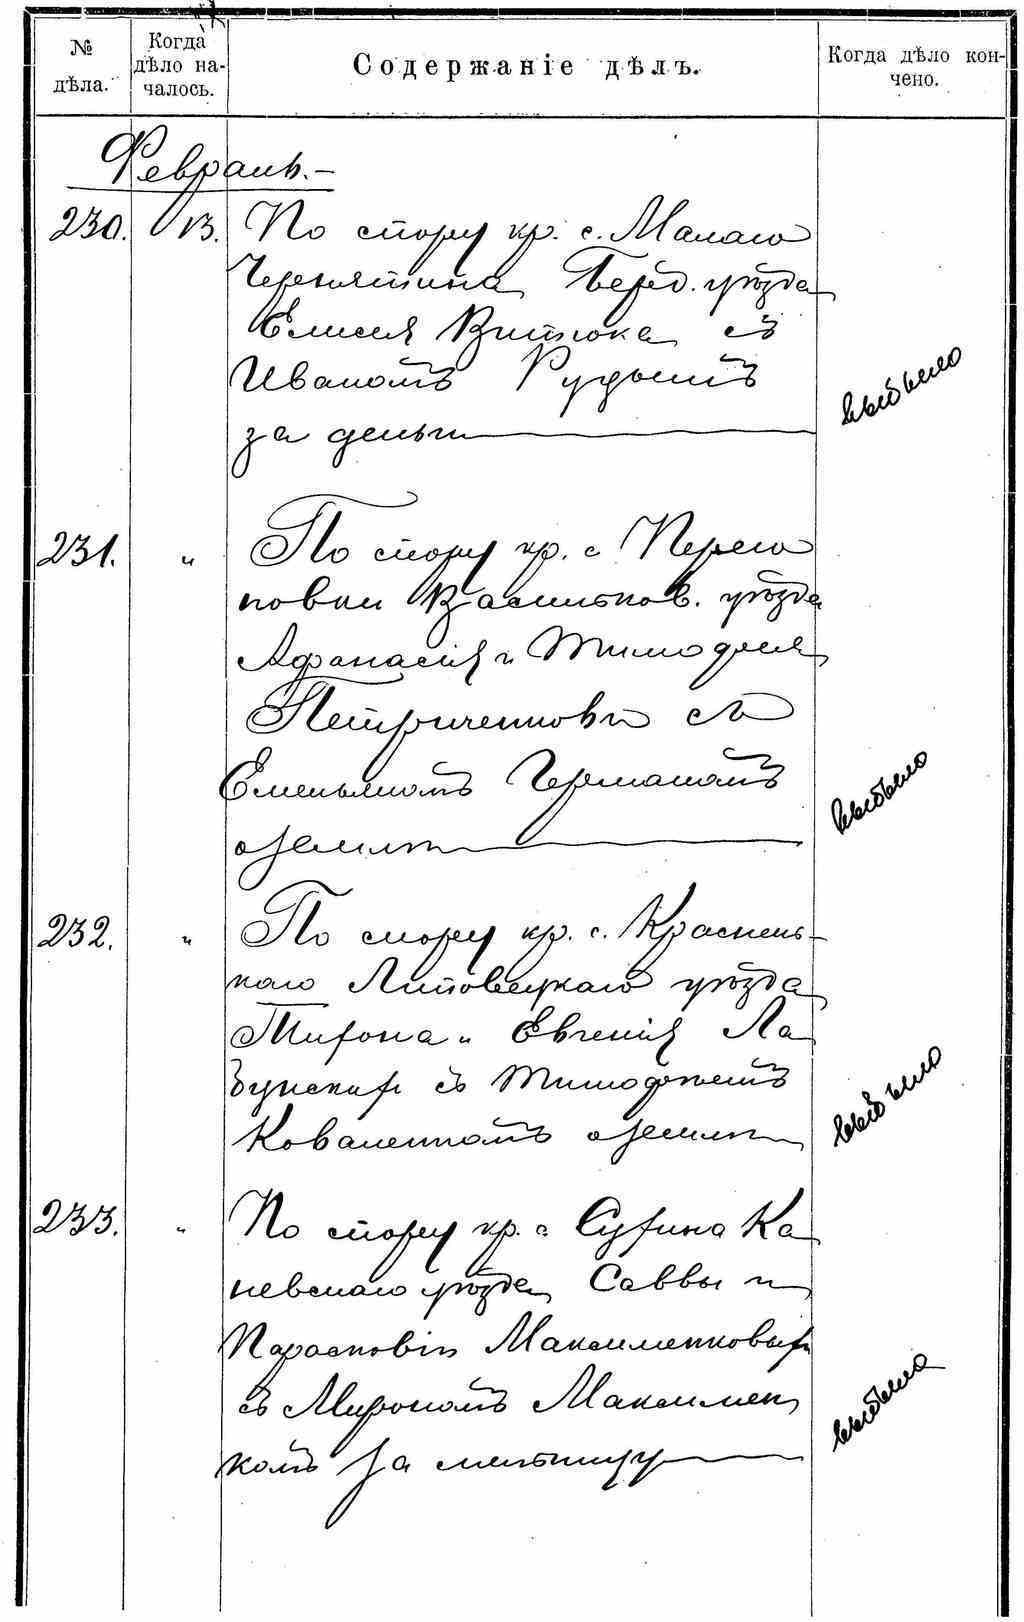 № дѣла.
Когда дѣло на-
чалось.
Содержаніе дѣлъ.
Когда дѣло кон-
чено.
Февраль.-
230. 13. По спору кр. с. Малаго
Чернятина Берд. уѣзда
Елисея Витюка съ
Иваномъ Рудымъ
за деньги
выбыло
231. " По спору кр. с.
новки Васильков. уѣзда
Афанасія и Тимофея
Петриченковъ съ
Емельяномъ
о землѣ
выбыло
232. " По спору кр. с. Краснень-
каго Липовецкаго уѣзда
и Евгенія Ла
съ Тимофѣемъ
Коваленкомъ о землѣ
выбыло
233. " По спору кр. с. Ка
невскаго уѣзда Саввы и
Параскевіи Максименковыхъ
съ Мирономъ Максимен
комъ за
выбыло